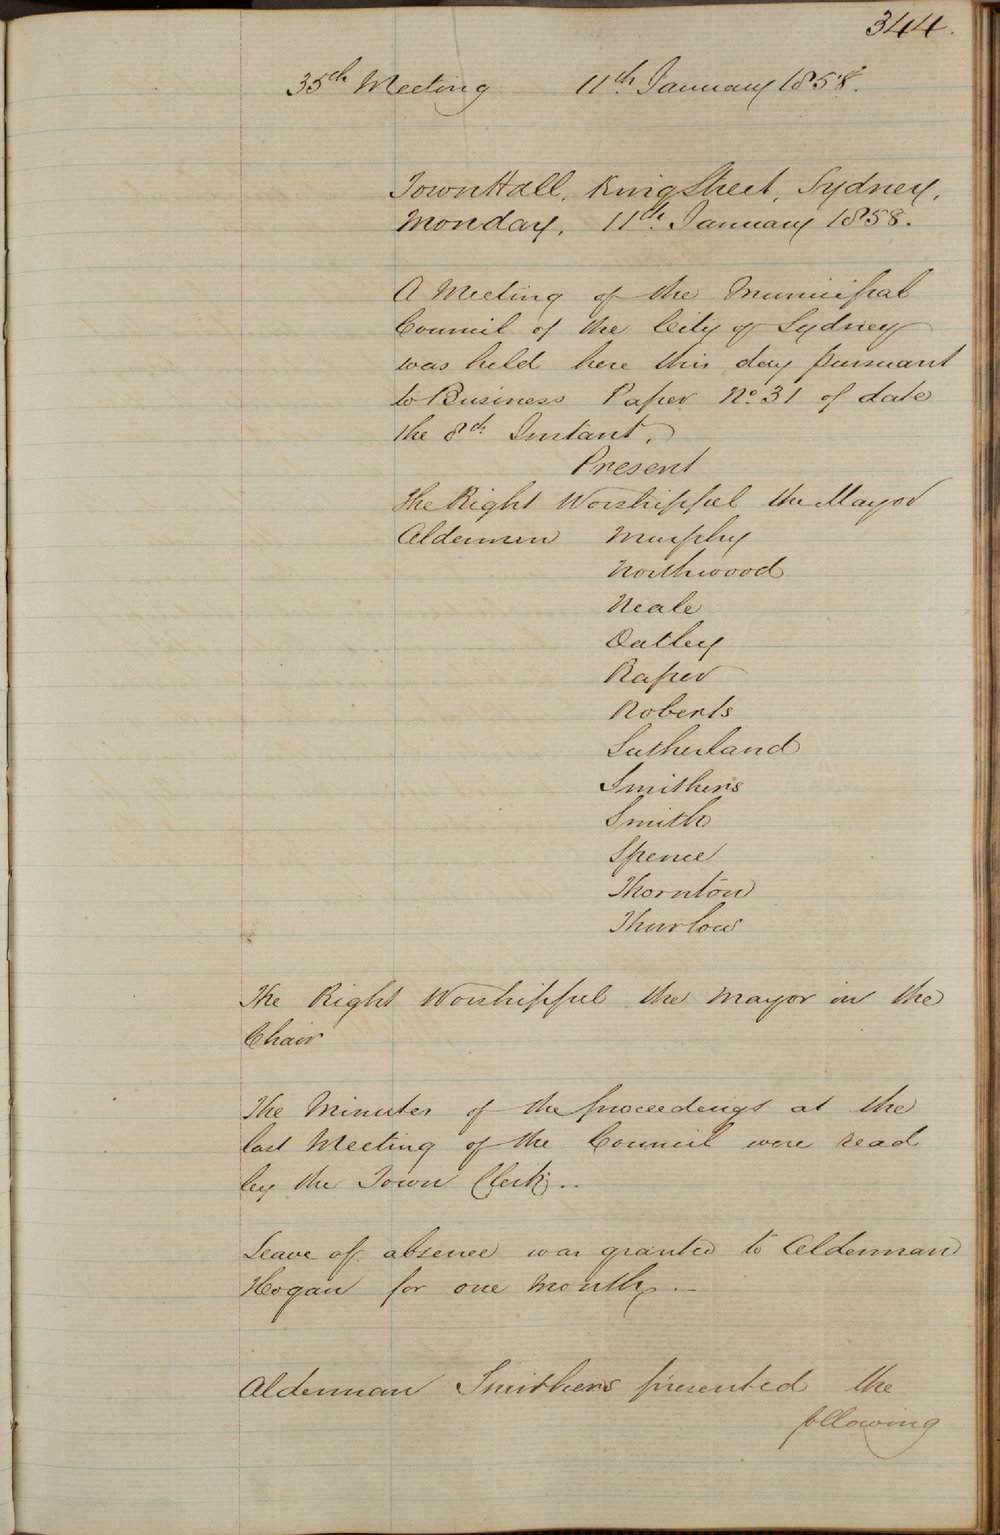 344.
35th Meeting 11th January 1858.
Town Hall, King Street, Sydney,
Monday, 11th January 1858.
A Meeting of the Municipal
Council of the City of Sydney
was held here this day pursuant
to Business Paper No. 31 of date
the 8th Instant.
Present
The Right Worshipful the Mayor
Aldermen Murphy
Northwood
Neale
Oatley
Raper
Roberts
Sutherland
Smithers
Smith
Spence
Thornton
Thurlow
The Right Worshipful the Mayor in the
Chair
The Minutes of the proceedings at the
last Meeting of the Council were read
by the Town Clerk..
Leave of absence was granted to Alderman
Hogan for one Month. –
Alderman Smithers presented the
following